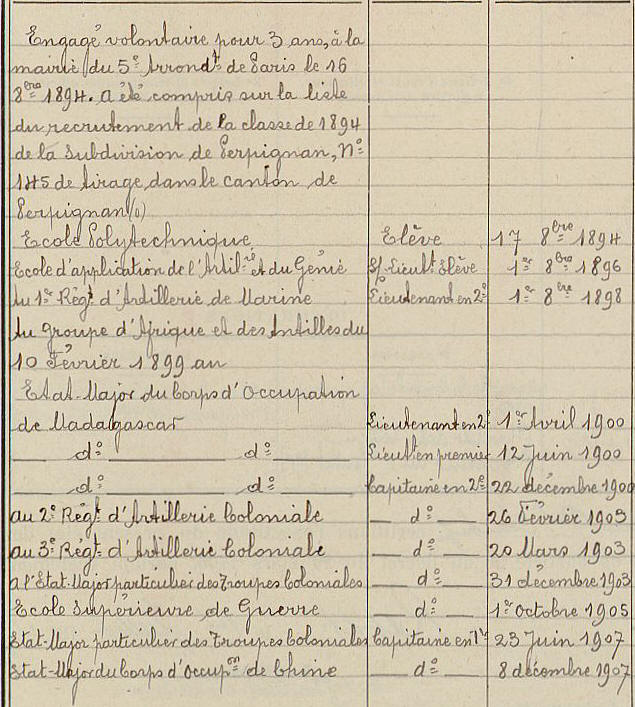 Engagé volontaire pour 3 ans, à la
mairie du 5e Arrondt de Paris le 16
8bre 1894. a été compris sur la liste
du recrutement de la classe de 1894
de la subdivision de Perpignan, No
145 de tirage, dans le canton de
Perpignan (o)
Ecole Polytechnique Elève 17 8bre 1894
Ecole d'application de l'Artilie et du Génie S/ Lieutt Elève 1er 8bre 1896
Au 1er Régt d'Artillerie de Marine Lieutenant en 2e 1er 8bre 1898
Au Groupe d'Afrique et des Antilles du
10 Février 1899 au
Etat-Major du Corps d'Occupation
de Madagascar Lieutenant en 2e 1er Avril 1900
do do Lieutt en premier 12 Juin 1900
do do Capitaine en 2e 22 décembre 1900
au 2e Régt d'Artillerie Coloniale do 26 Février 1903
au 3e Régt d'Artillerie Coloniale do 20 Mars 1903
a l'Etat-Major particulier des Troupes Coloniales do 31 décembre 1903
Ecole Supérieure de Guerre do 1er Octobre 1905
Etat-Major particulier des Troupes Coloniales Capitaine en 1er 23 Juin 1907
Etat-Major du Corps d'Occupon de Chine do 8 décembre 1907